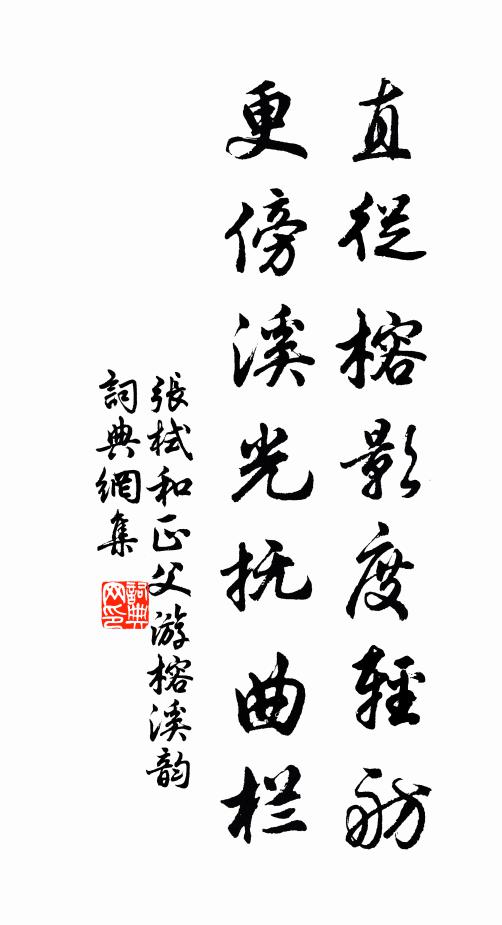 直從榕影度輕舫
更傍溪光抚曲栏
張栻和正父游榕溪韵
詞典網集
詞典
网印